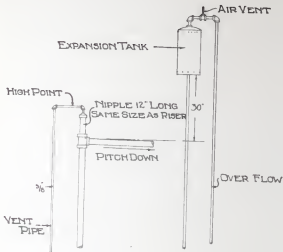 AIR VENT
EXPANSION TANK
HIGH POINT
NIPPLE 12" LONG
SAME SIZE AS RISER
30"
PITCH DOWN
OVER FLOW
VENT
PIPE